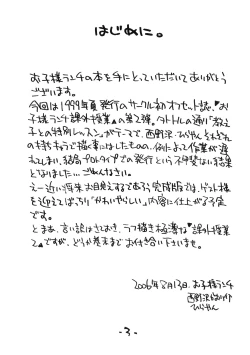 はじめに。
お子様ランチの本を手にとっていただいてありがとう
ございます。
今回は1999年夏発行のサークル初オフセット誌、『お
子様ランチ課外授業』の第2弾。タイトルの通り「教え
子との特別レッスン」がテーマで、西野沢・ひらやんそれぞれ
の持ち
てしまい、結局プロトタイプでの発行という不甲斐ない結果
となりました…ごめんなさい。
えー近い将来お目見えするであろう完成版では、ゲスト様
を迎えてばっちり"かわいやらしい"内容に仕上がる予定
です。
とまあ、言い訳はさておき、ラフ描き極薄な『課外授業
2』ですが、どうか巻末までお付き合い下さいませ。
2006年 お子様ランチ
ひらやん
-3-